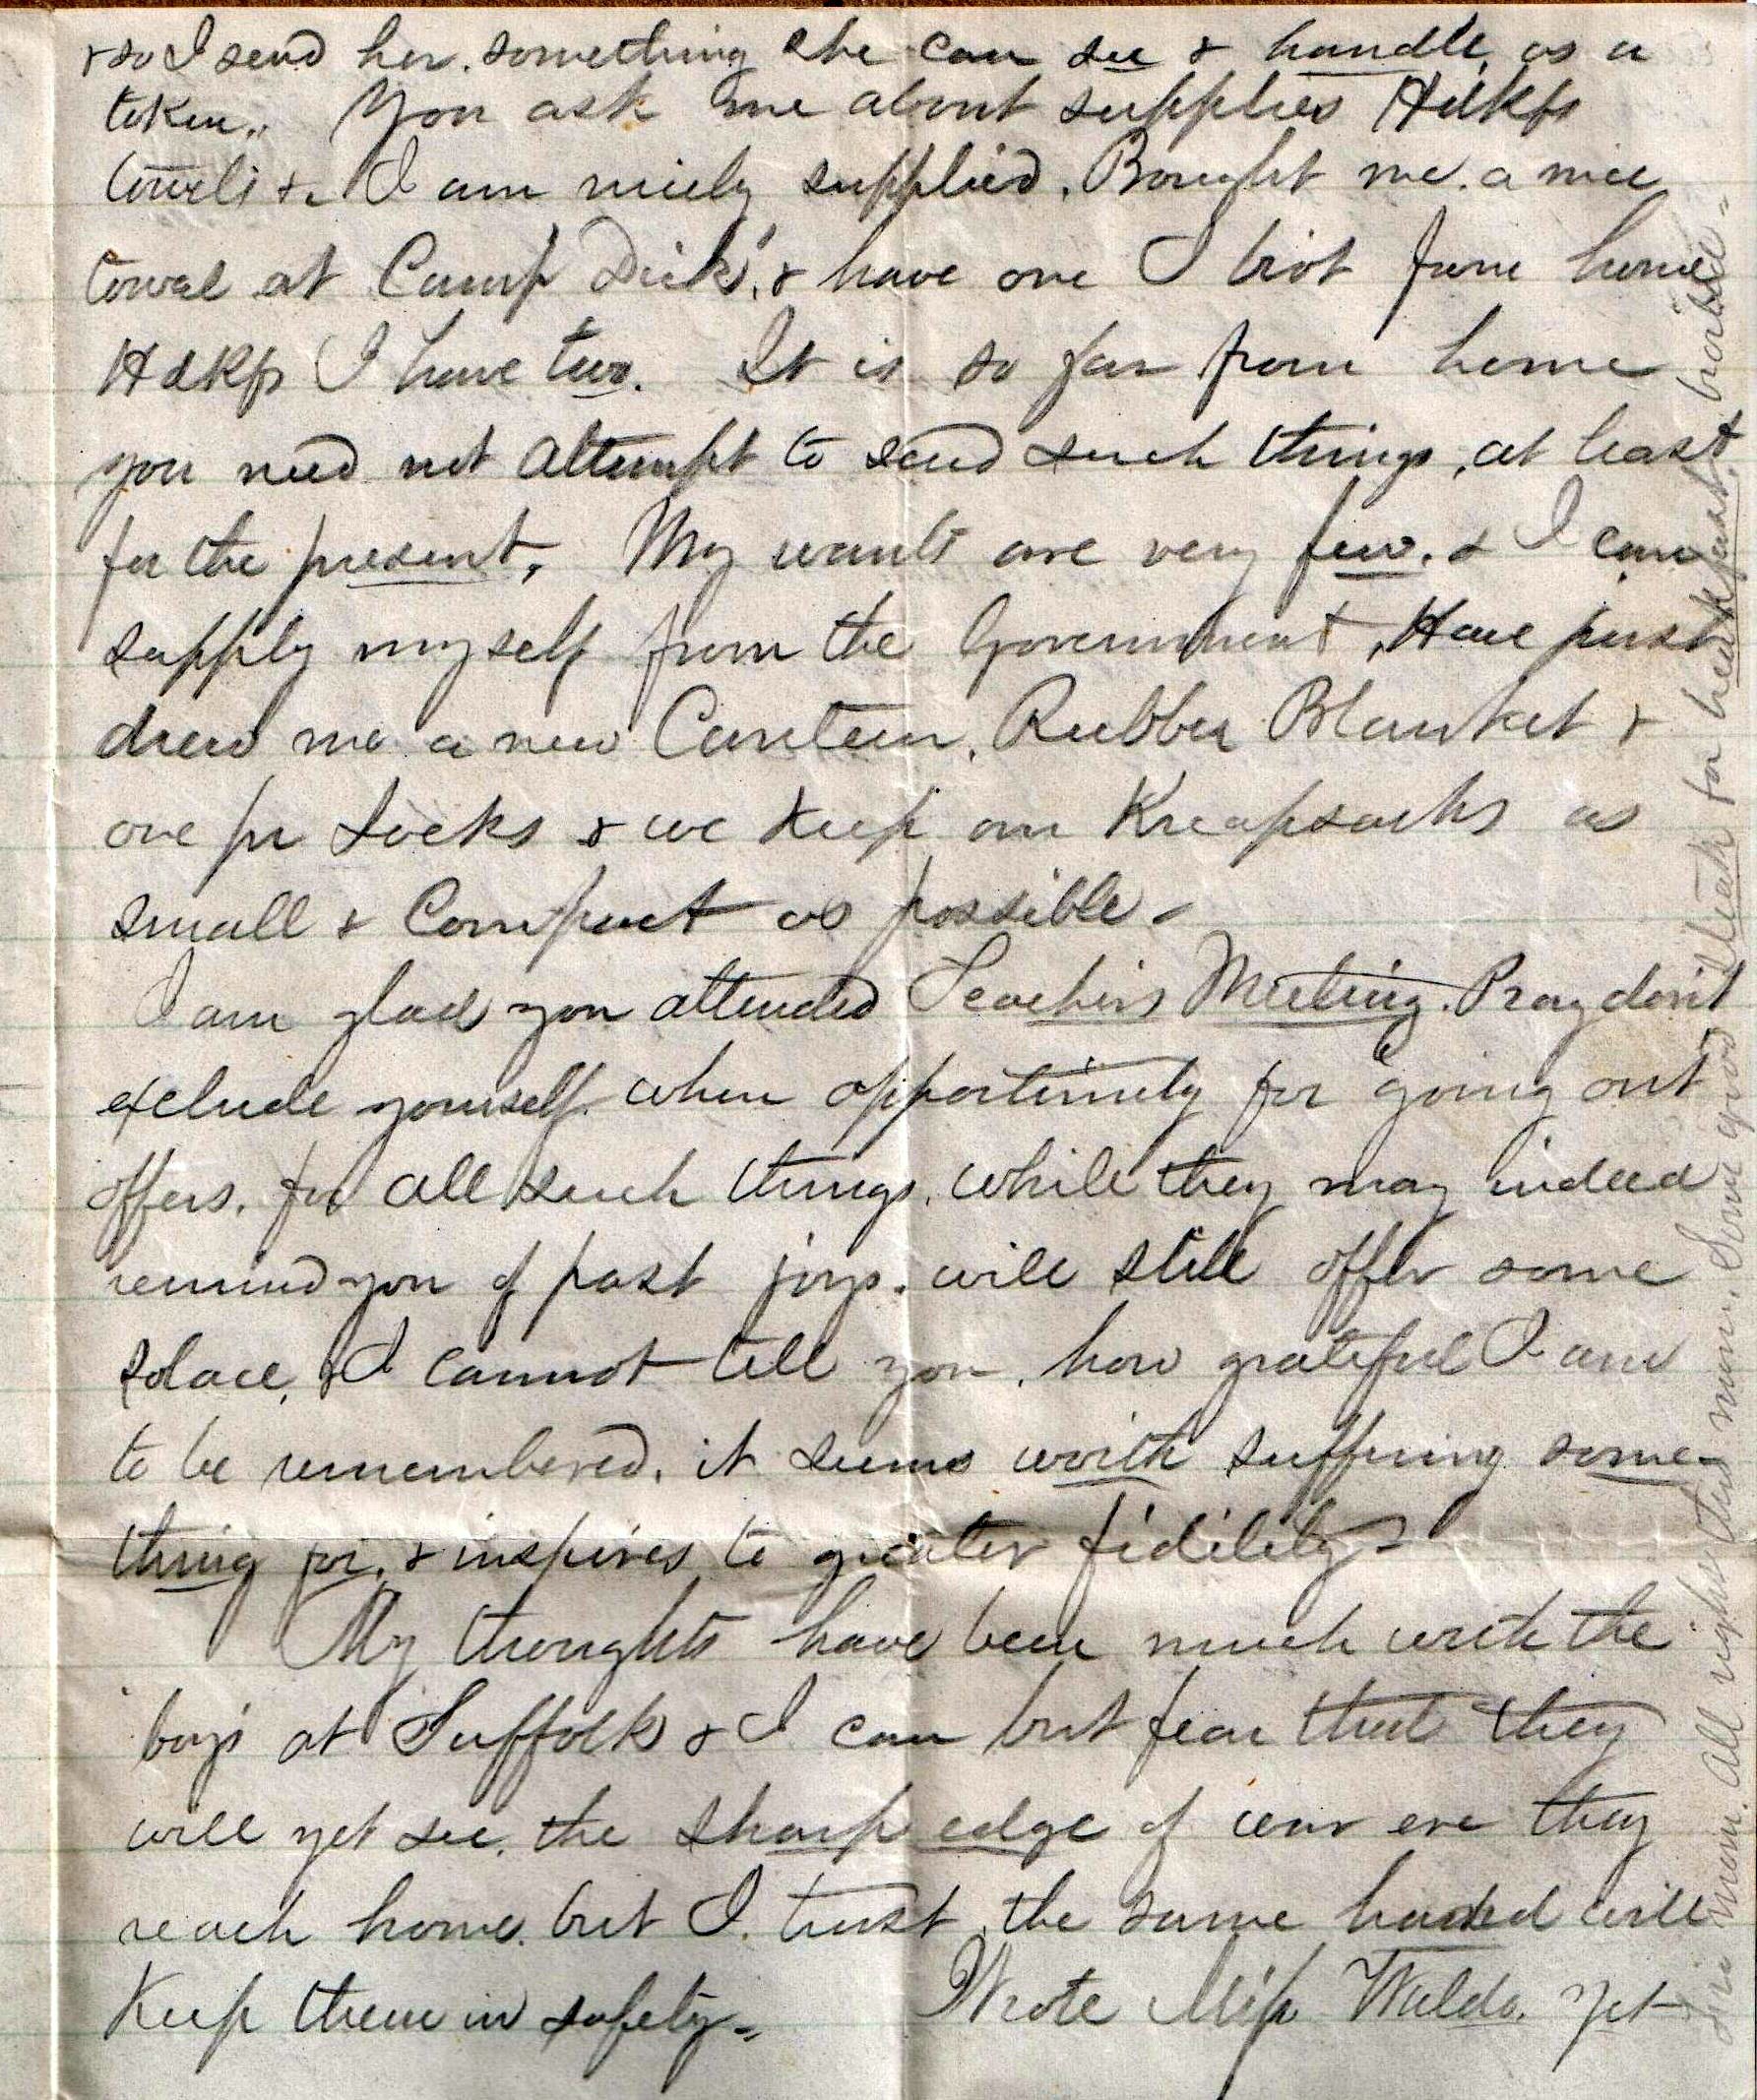 & so I send her. something she can see & handle, as a
token. You ask me about supplies Hdkfs
towels &c I am nicely supplied. Bought me. a nice
towel at Camp Dick', & have one I brot from home
Hdkfs I have two. It is so far from home
you need not attempt to send such things, at least
for the present. My wants are very few. & I can
supply myself from the Government, Have just
drew me a new Canteen, Rubber Blanket &
one pr Socks & we keep our Knapsacks as
small & Compact as possible -
I am glad you attended Teachers Meeting. Pray don't
exclude yourself. when opportunity for going out
offers. for all such things, while they may indeed
remind you of past joys. will still offer some
solace, & I cannot tell you, how grateful I am
to be remembered. it seems worth suffering some-
thing for, & inspires to greater fidelity -
My thoughts have been much with the
boys at Suffolk & I can but fear that they
will yet see. the sharp edge of war ere they
reach home. but I. trust, the same hand will
Keep them in safety - Wrote Miss Waldo. yet
mem. All night this morn. Some good Steak for breakfast, broiled -